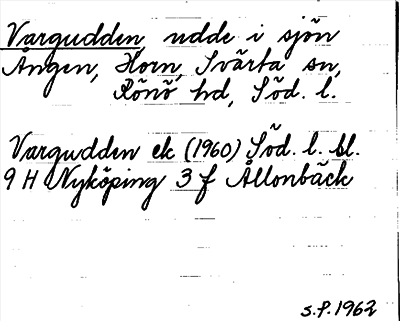 Vargudden, udde i sjön
Ången, Horn, Svärta sn,
Rönö hd, Söd. l.
Vargudden ek (1960) Söd. l. bl.
9 H Nyköping 3 f Ållonbäck
S.P. 1962